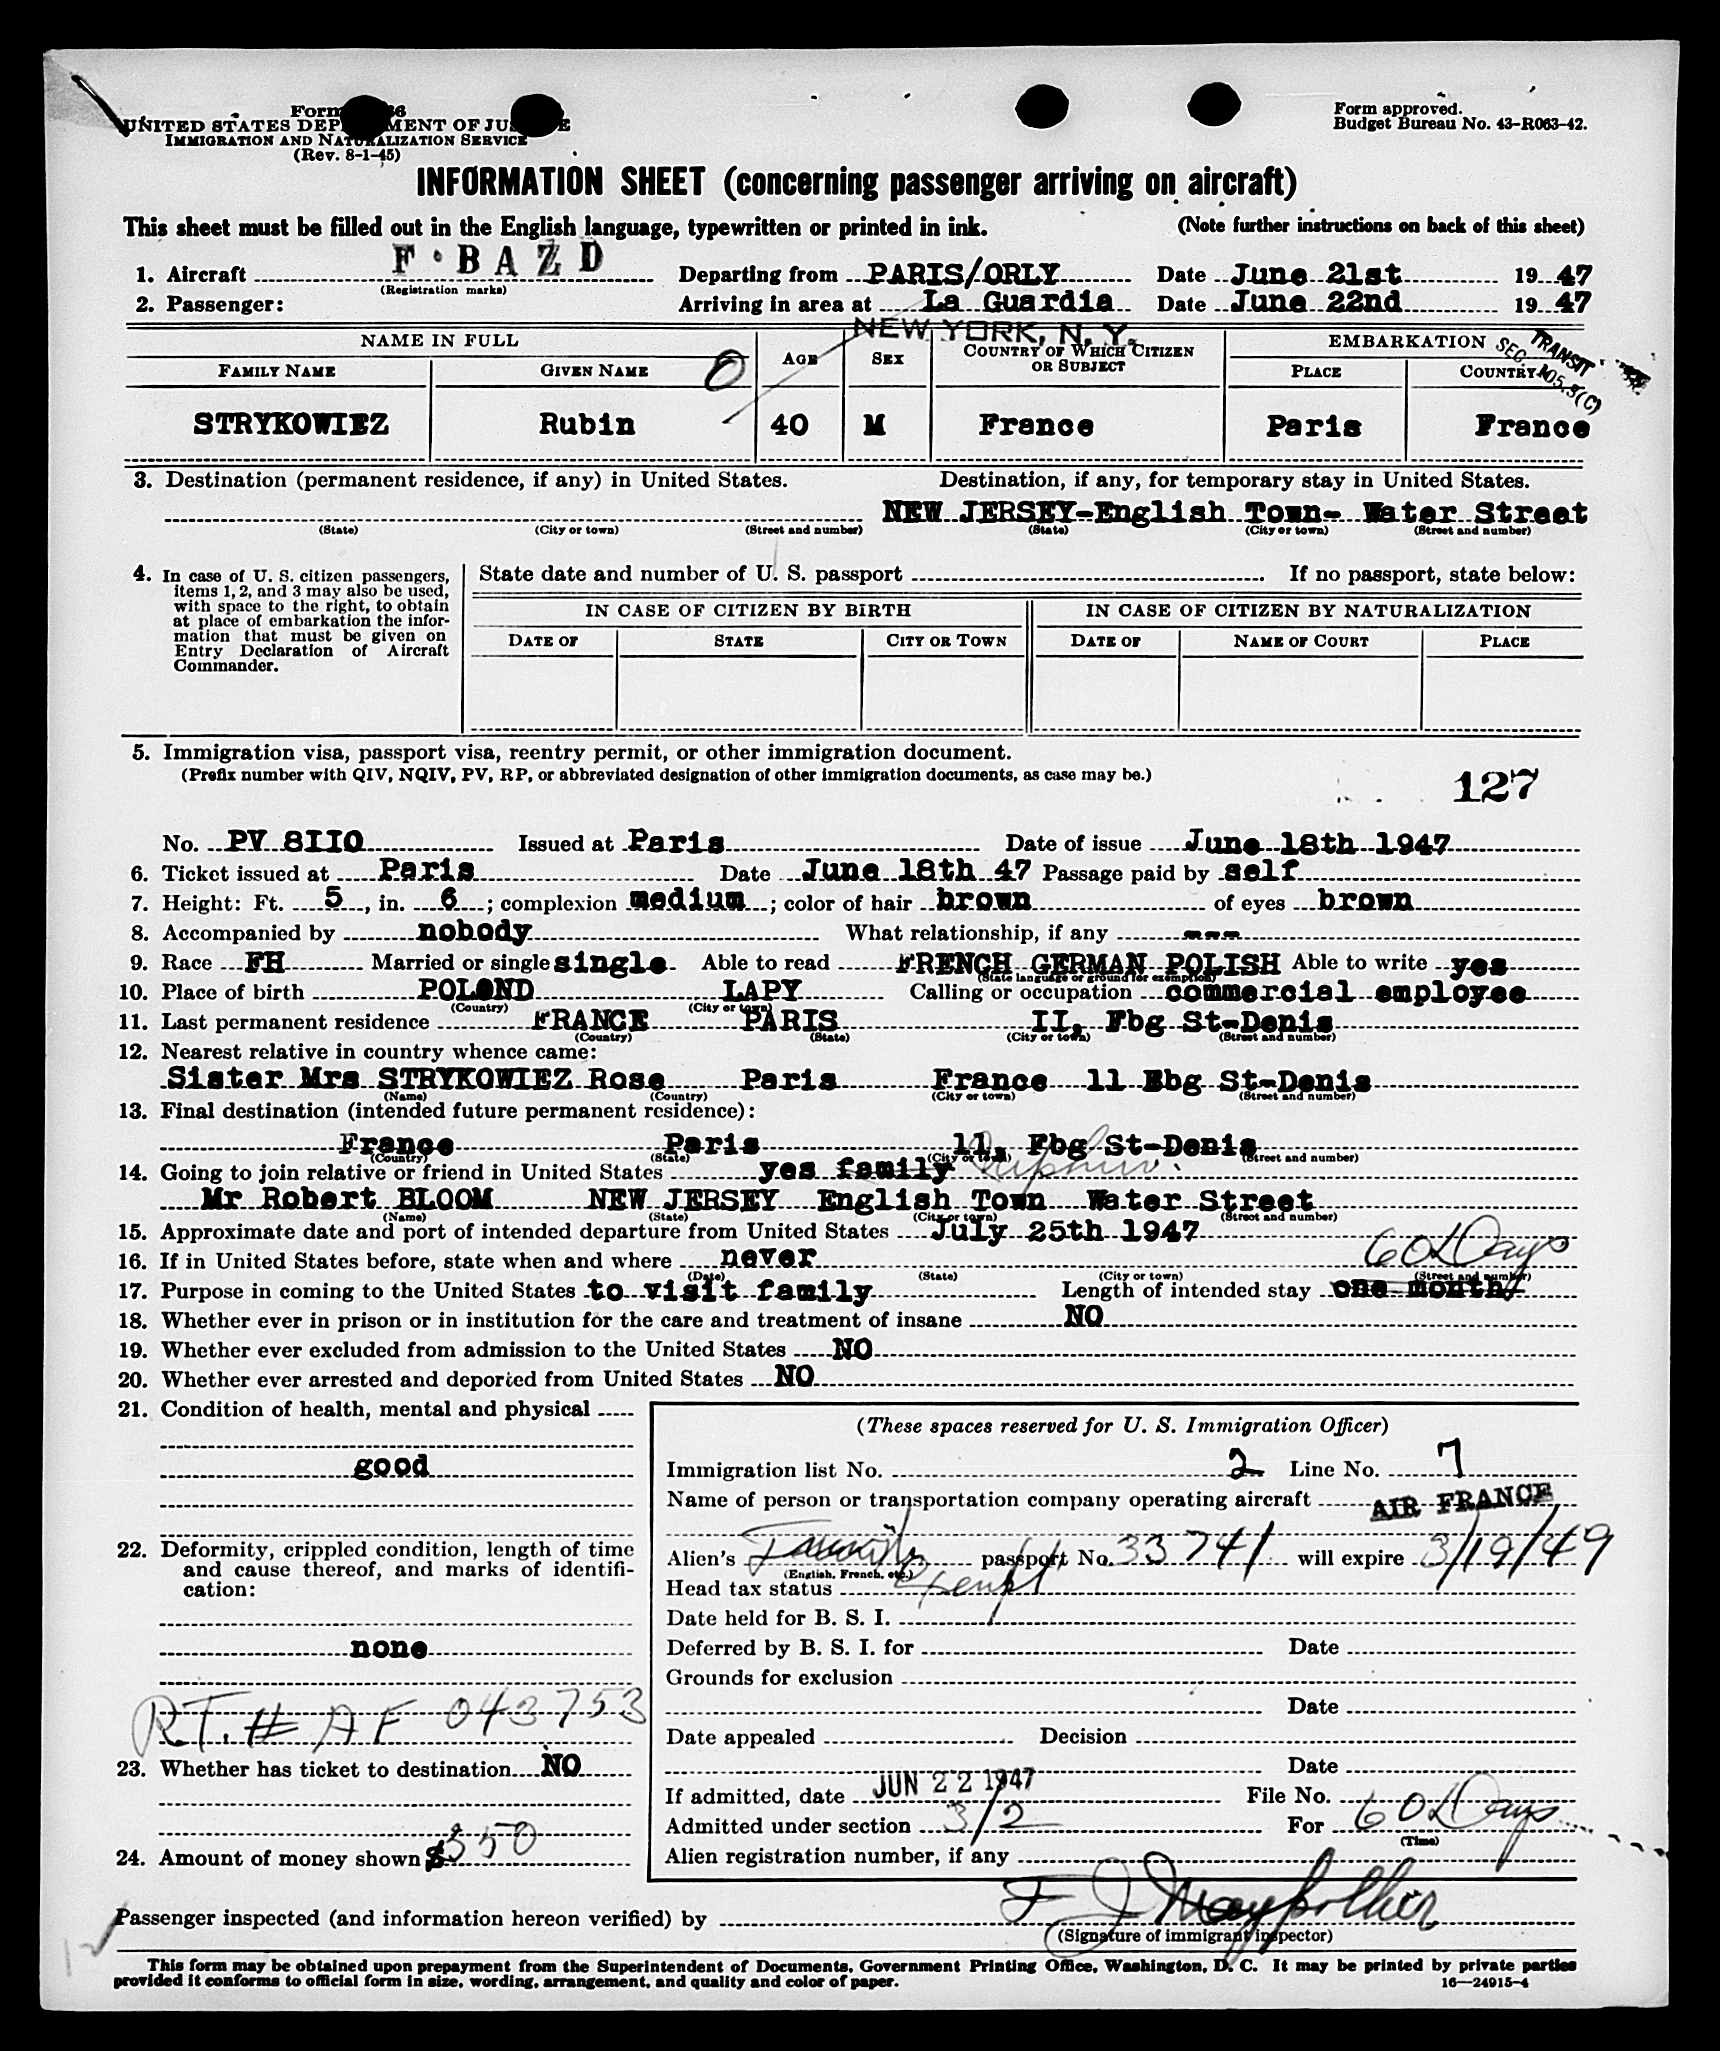 Form 66
UNITED STATES DEP MENT OF JUS E
IMMIGRATION AND NATURALIZATION SERVICE
(Rev. 8-1-45)
Form approved.
Budget Bureau No. 43-R063-42.
INFORMATION SHEET (concerning passenger arriving on aircraft)
This sheet must be filled out in the English language, typewritten or printed in ink. (Note further instructions on back of this sheet)
1. Aircraft F·BAZD Departing from PARIS/ORLY Date June 21st 19 47
(Registration marks)
2. Passenger: Arriving in area at La Guardia Date June 22nd 19 47
NEW YORK, N. Y.
NAME IN FULL AGE SEX COUNTRY OF WHICH CITIZEN OR SUBJECT EMBARKATION
TRANSIT
SEC. 105.3(C)
FAMILY NAME GIVEN NAME PLACE COUNTRY
STRYKOWIEZ Rubin 40 M France Paris France
3. Destination (permanent residence, if any) in United States. Destination, if any, for temporary stay in United States.
NEW JERSEY-English Town- Water Street
(State) (City or town) (Street and number) (State) (City or town) (Street and number)
4. In case of U. S. citizen passengers, items 1, 2, and 3 may also be used, with space to the right, to obtain at place of embarkation the infor-mation that must be given on Entry Declaration of Aircraft Commander.
State date and number of U. S. passport If no passport, state below:
IN CASE OF CITIZEN BY BIRTH IN CASE OF CITIZEN BY NATURALIZATION
DATE OF STATE CITY OR TOWN DATE OF NAME OF COURT PLACE
5. Immigration visa, passport visa, reentry permit, or other immigration document.
(Prefix number with QIV, NQIV, PV, RP, or abbreviated designation of other immigration documents, as case may be.)
127
No. PV 8II0 Issued at Paris Date of issue June 18th 1947
6. Ticket issued at Paris Date June 18th 47 Passage paid by self
7. Height: Ft. 5, in. 6; complexion medium; color of hair brown of eyes brown
8. Accompanied by nobody What relationship, if any ---
9. Race FH Married or single single Able to read FRENCH GERMAN POLISH Able to write yes
(State language or ground for exemption)
10. Place of birth POLOND LAPY Calling or occupation commercial employee
(Country) (City or town)
11. Last permanent residence FRANCE PARIS II, Fbg St-Denis
(Country) (State) (City or town) (Street and number)
12. Nearest relative in country whence came:
Sister Mrs STRYKOWIEZ Rose Paris France 11 Fbg St-Denis
(Name) (Country) (City or town) (Street and number)
13. Final destination (intended future permanent residence):
France Paris 11, Fbg St-Denis
(Country) (State) (City or town) (Street and number)
14. Going to join relative or friend in United States yes family
Mr Robert BLOOM NEW JERSEY English Town Water Street
(Name) (State) (City or town) (Street and number)
15. Approximate date and port of intended departure from United States July 25th 1947
60 Days
16. If in United States before, state when and where never
(Date) (State) (City or town) (Street and number)
17. Purpose in coming to the United States to visit family Length of intended stay one month
18. Whether ever in prison or in institution for the care and treatment of insane NO
19. Whether ever excluded from admission to the United States NO
20. Whether ever arrested and deported from United States NO
21. Condition of health, mental and physical
good
22. Deformity, crippled condition, length of time and cause thereof, and marks of identifi-cation:
none
RT. # AF 043753
23. Whether has ticket to destination NO
24. Amount of money shown $350
(These spaces reserved for U. S. Immigration Officer)
Immigration list No. 2 Line No. 7
Name of person or transportation company operating aircraft AIR FRANCE
Alien's passport No. 33741 will expire 3/19/49
(English, French, etc.)
Head tax status Exempt
Date held for B. S. I.
Deferred by B. S. I. for Date
Grounds for exclusion
Date
Date appealed Decision
Date
If admitted, date JUN 22 1947 File No.
Admitted under section 3/2 For 60 Days
(Time)
Alien registration number, if any
Passenger inspected (and information hereon verified) by F J
(Signature of immigrant inspector)
This form may be obtained upon prepayment from the Superintendent of Documents, Government Printing Office, Washington, D. C. It may be printed by private parties
provided it conforms to official form in size, wording, arrangement, and quality and color of paper. 16—24915-4